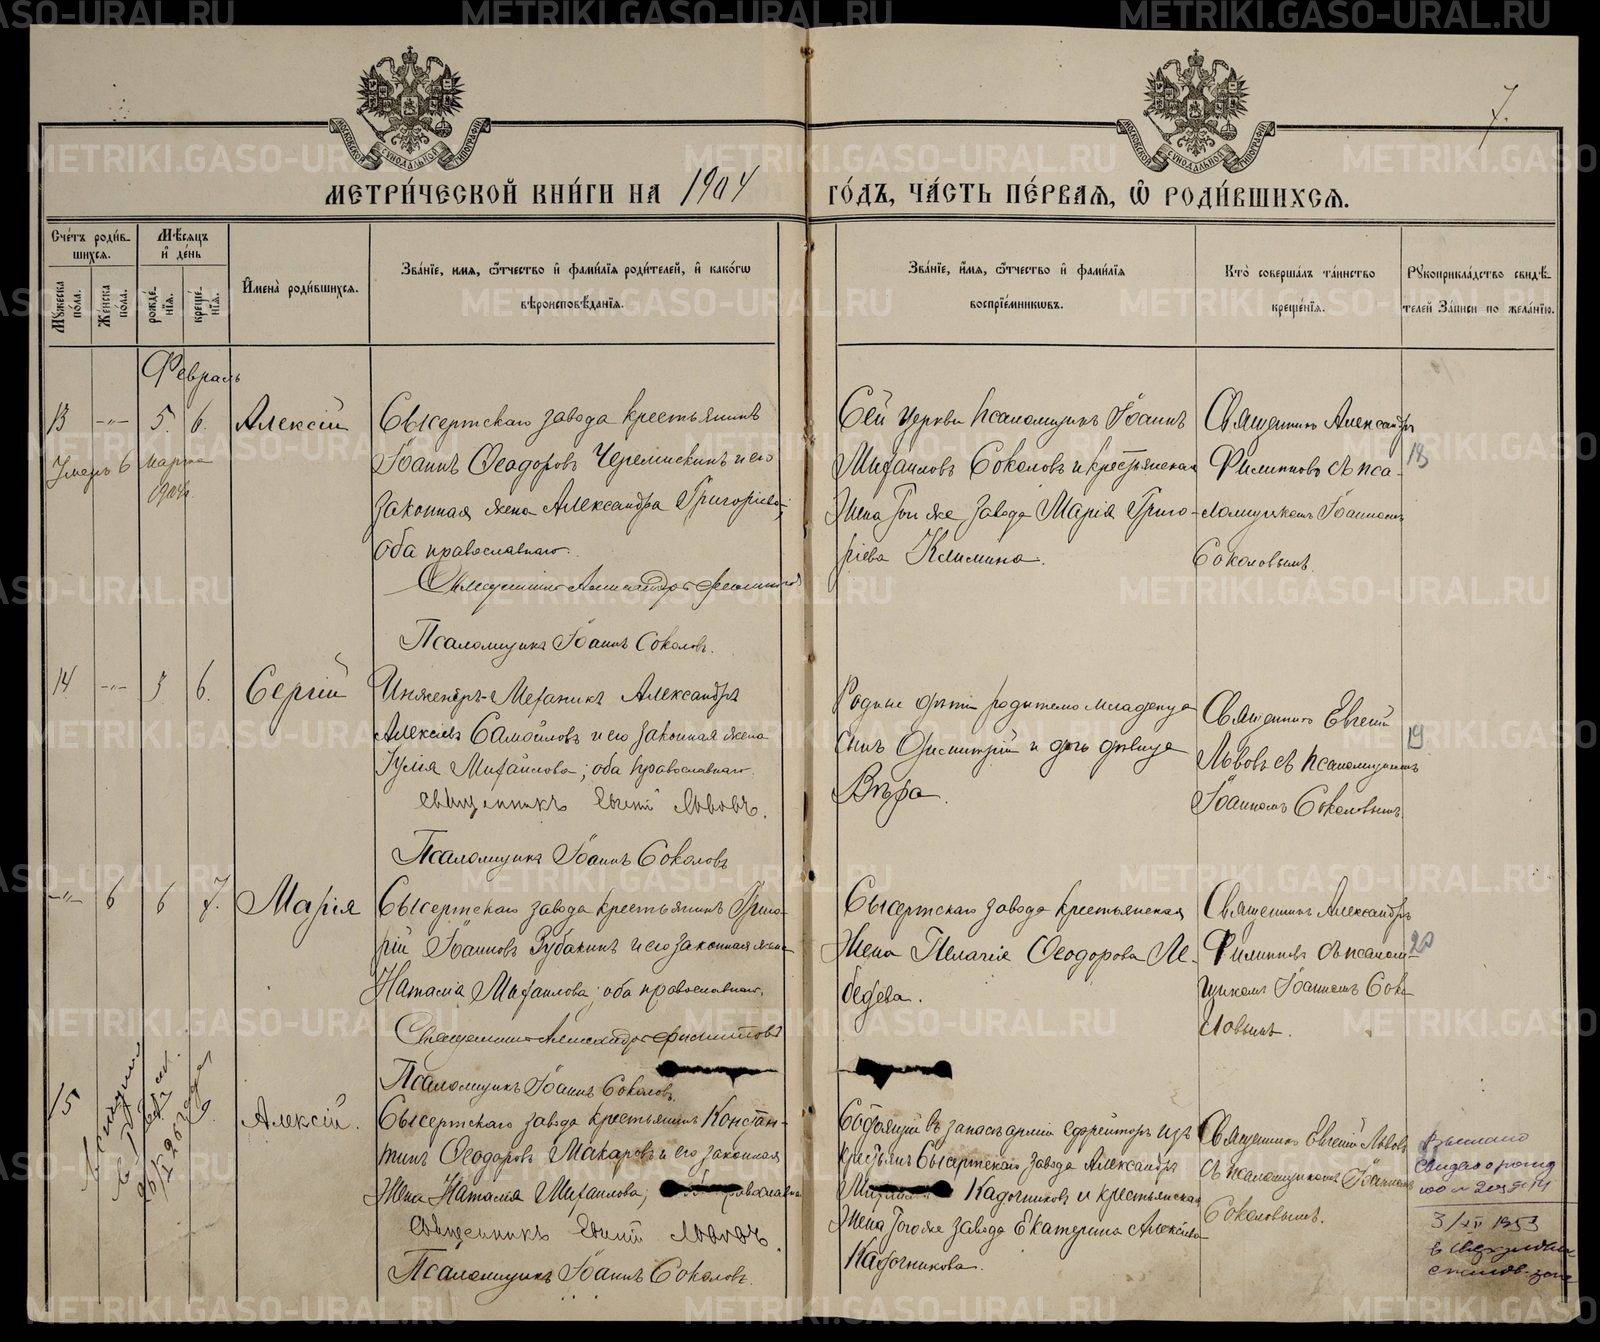 7.
МЕТРИ́ЧЕСКОЙ КНИ́ГИ НА 1904 ГО́ДЪ, ЧА́СТЬ ПЕ́РВАЯ, Ѡ҆ РОДИ́ВШИХСѦ.
Сче́тъ роди́вшихсѧ.
Мѣ́сѧцъ и҆ де́нь
Мꙋ́жеска по́ла.
Же́нска по́ла.
рожде́нїѧ.
креще́нїѧ.
И҆мена̀ роди́вшихсѧ.
Зва́нїе, имѧ, ѻ҆́тчество и҆ фами́лїѧ роди́телей, и҆ како́гѡ
вѣроисповѣ́данїѧ.
Зва́нїе, и҆́мѧ, ѻ҆́тчество и҆ фами́лїѧ
воспрїе́мникѡвъ.
Кто̀ соверша́лъ та́инство
креще́нїѧ.
Рꙋкоприкла́дство свидѣ́телей за́писи по жела́нїю.
Февраль
13 -"- 5. 6. Алексій
Умеръ 6 марта
1904 г.
Сысертскаго завода крестьянинъ
Іоаннъ Ѳеодоровъ Черемискинъ и его
законная жена Александра Григорьева;
оба православнаго.
Священникъ Александръ Филипповъ
Псаломщикъ Іоаннъ Соколовъ.
Сей церкви псаломщикъ Іоаннъ
Михайловъ Соколовъ и крестьянская
жена Той же завода Марія Григо-
рьева Климина.
Священникъ Александръ
Филипповъ съ пса-
ломщикомъ Іоанномъ
Соколовымъ.
18
14 -"- 5 6. Сергій
Инженеръ-Механикъ Александръ
Алексѣевъ Самойловъ и его законная жена
Іулія Михайлова; оба православнаго.
священникъ Евгеній Львовъ.
Псаломщикъ Іоаннъ Соколовъ
Родные дѣти родителей младенца
сынъ Димитрій и дочь дѣвица
Вѣра.
Священникъ Евгеній
Львовъ съ псаломщикомъ
Іоанномъ Соколовымъ.
19
-"- 6 6 7. Марія
Сысертскаго завода крестьянинъ Григо-
рій Іоанновъ Зубакинъ и его законная жена
Наталія Михайлова; оба православнаго.
Священникъ Александръ Филипповъ
Псаломщикъ Іоаннъ Соколовъ.
Сысертскаго завода крестьянская
жена Пелагія Ѳеодорова Ле-
бедева.
Священникъ Александръ
Филипповъ съ псалом-
щикомъ Іоанномъ Соко-
ловымъ.
20
15 9 Алексій.
Сысертскаго завода крестьянинъ Констан-
тинъ Ѳеодоровъ Макаровъ и его законная
жена Наталія Михайлова; православн
священникъ Евгеній Львовъ.
Псаломщикъ Іоаннъ Соколовъ.
Состоящій въ запасѣ арміи ефрейторъ изъ
крестьянъ Сысертскаго завода Александръ
Кадочниковъ и крестьянская
жена Того же завода Екатерина Алексѣева
Кадочникова.
Священникъ Евгеній Львовъ
съ псаломщикомъ Іоанномъ
Соколовымъ.
Выслано
3/XII 1953
METRIKI.GASO-URAL.RU